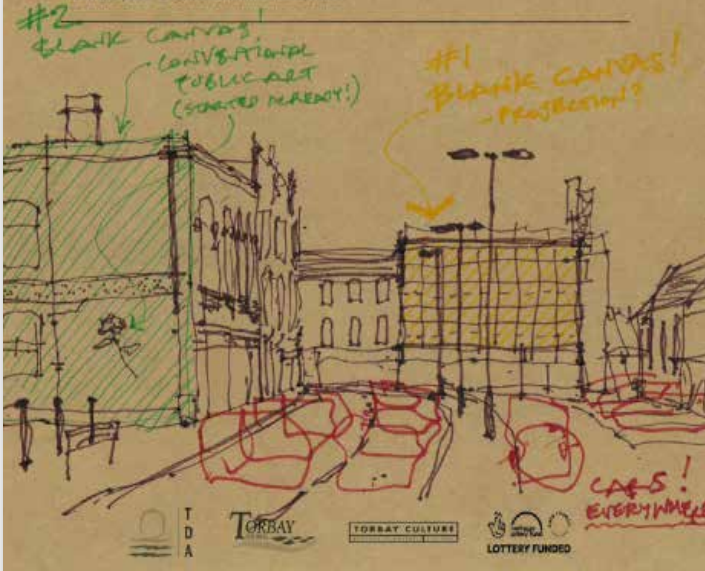 #2
BLANK CANVAS!
- CONVENTIONAL
PUBLIC ART
(STARTED ALREADY!)
#1
BLANK CANVAS!
- PROJECTION?
CARS!
EVERYWHERE
T
D
A
TORBAY
TORBAY CULTURE
LOTTERY FUNDED